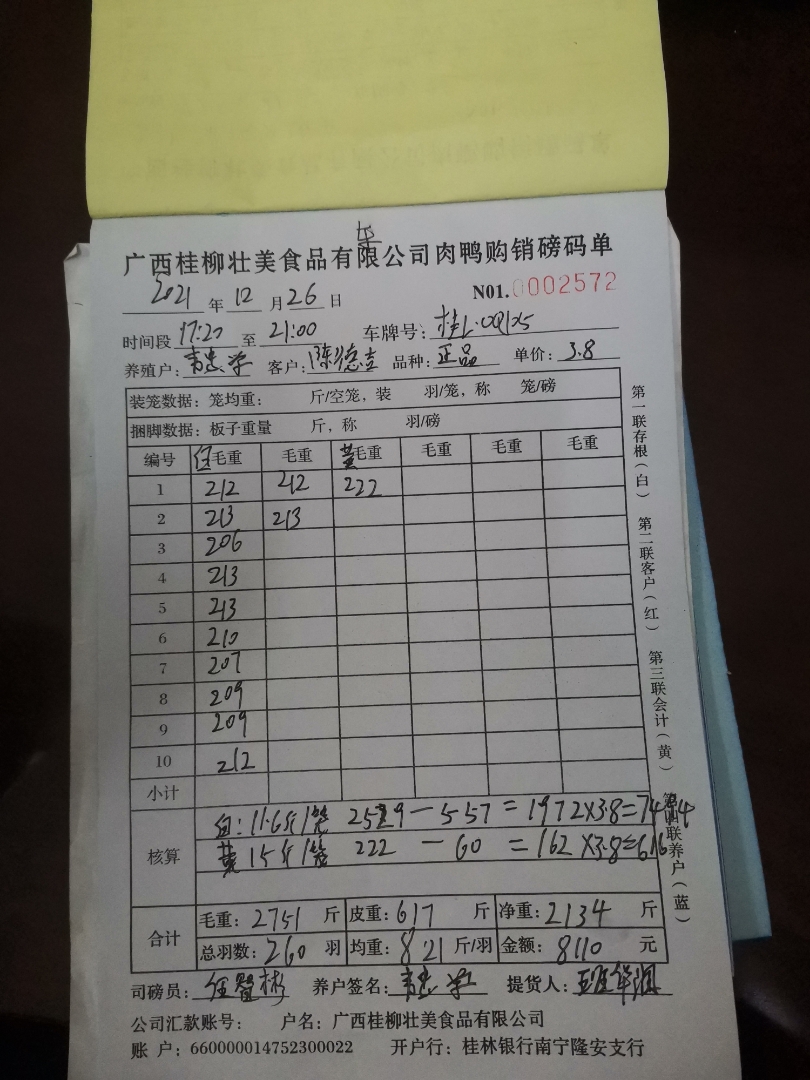 广西桂柳壮美食品有限公司肉鸭购销磅码单
2021年12月26日 N01.0002572
时间段 17:20 至 21:00 车牌号:
养殖户: 客户:陈德吉 品种:正品 单价:3.8
装笼数据:笼均重: 斤/空笼,装 羽/笼,称 笼/磅
捆脚数据:板子重量 斤,称 羽/磅
编号 毛重 毛重 黄毛重 毛重 毛重 毛重
1 212 212 222
2 213 213
3 206
4 213
5 213
6 210
7 207
8 209
9 209
10 212
小计
核算
11.6斤1笼 2529-557=1972×3.8=7494
黄 15斤1笼 222-60=162×3.8=616
合计
毛重:2751斤 皮重:617斤 净重:2134斤
总羽数:260羽 均重:8.21斤/羽 金额:8110元
司磅员: 养户签名: 提货人:
公司汇款账号: 户名:广西桂柳壮美食品有限公司
账 户:660000014752300022 开户行:桂林银行南宁隆安支行
第一联存根(白) 第二联客户(红) 第三联会计(黄) 第四联养户(蓝)